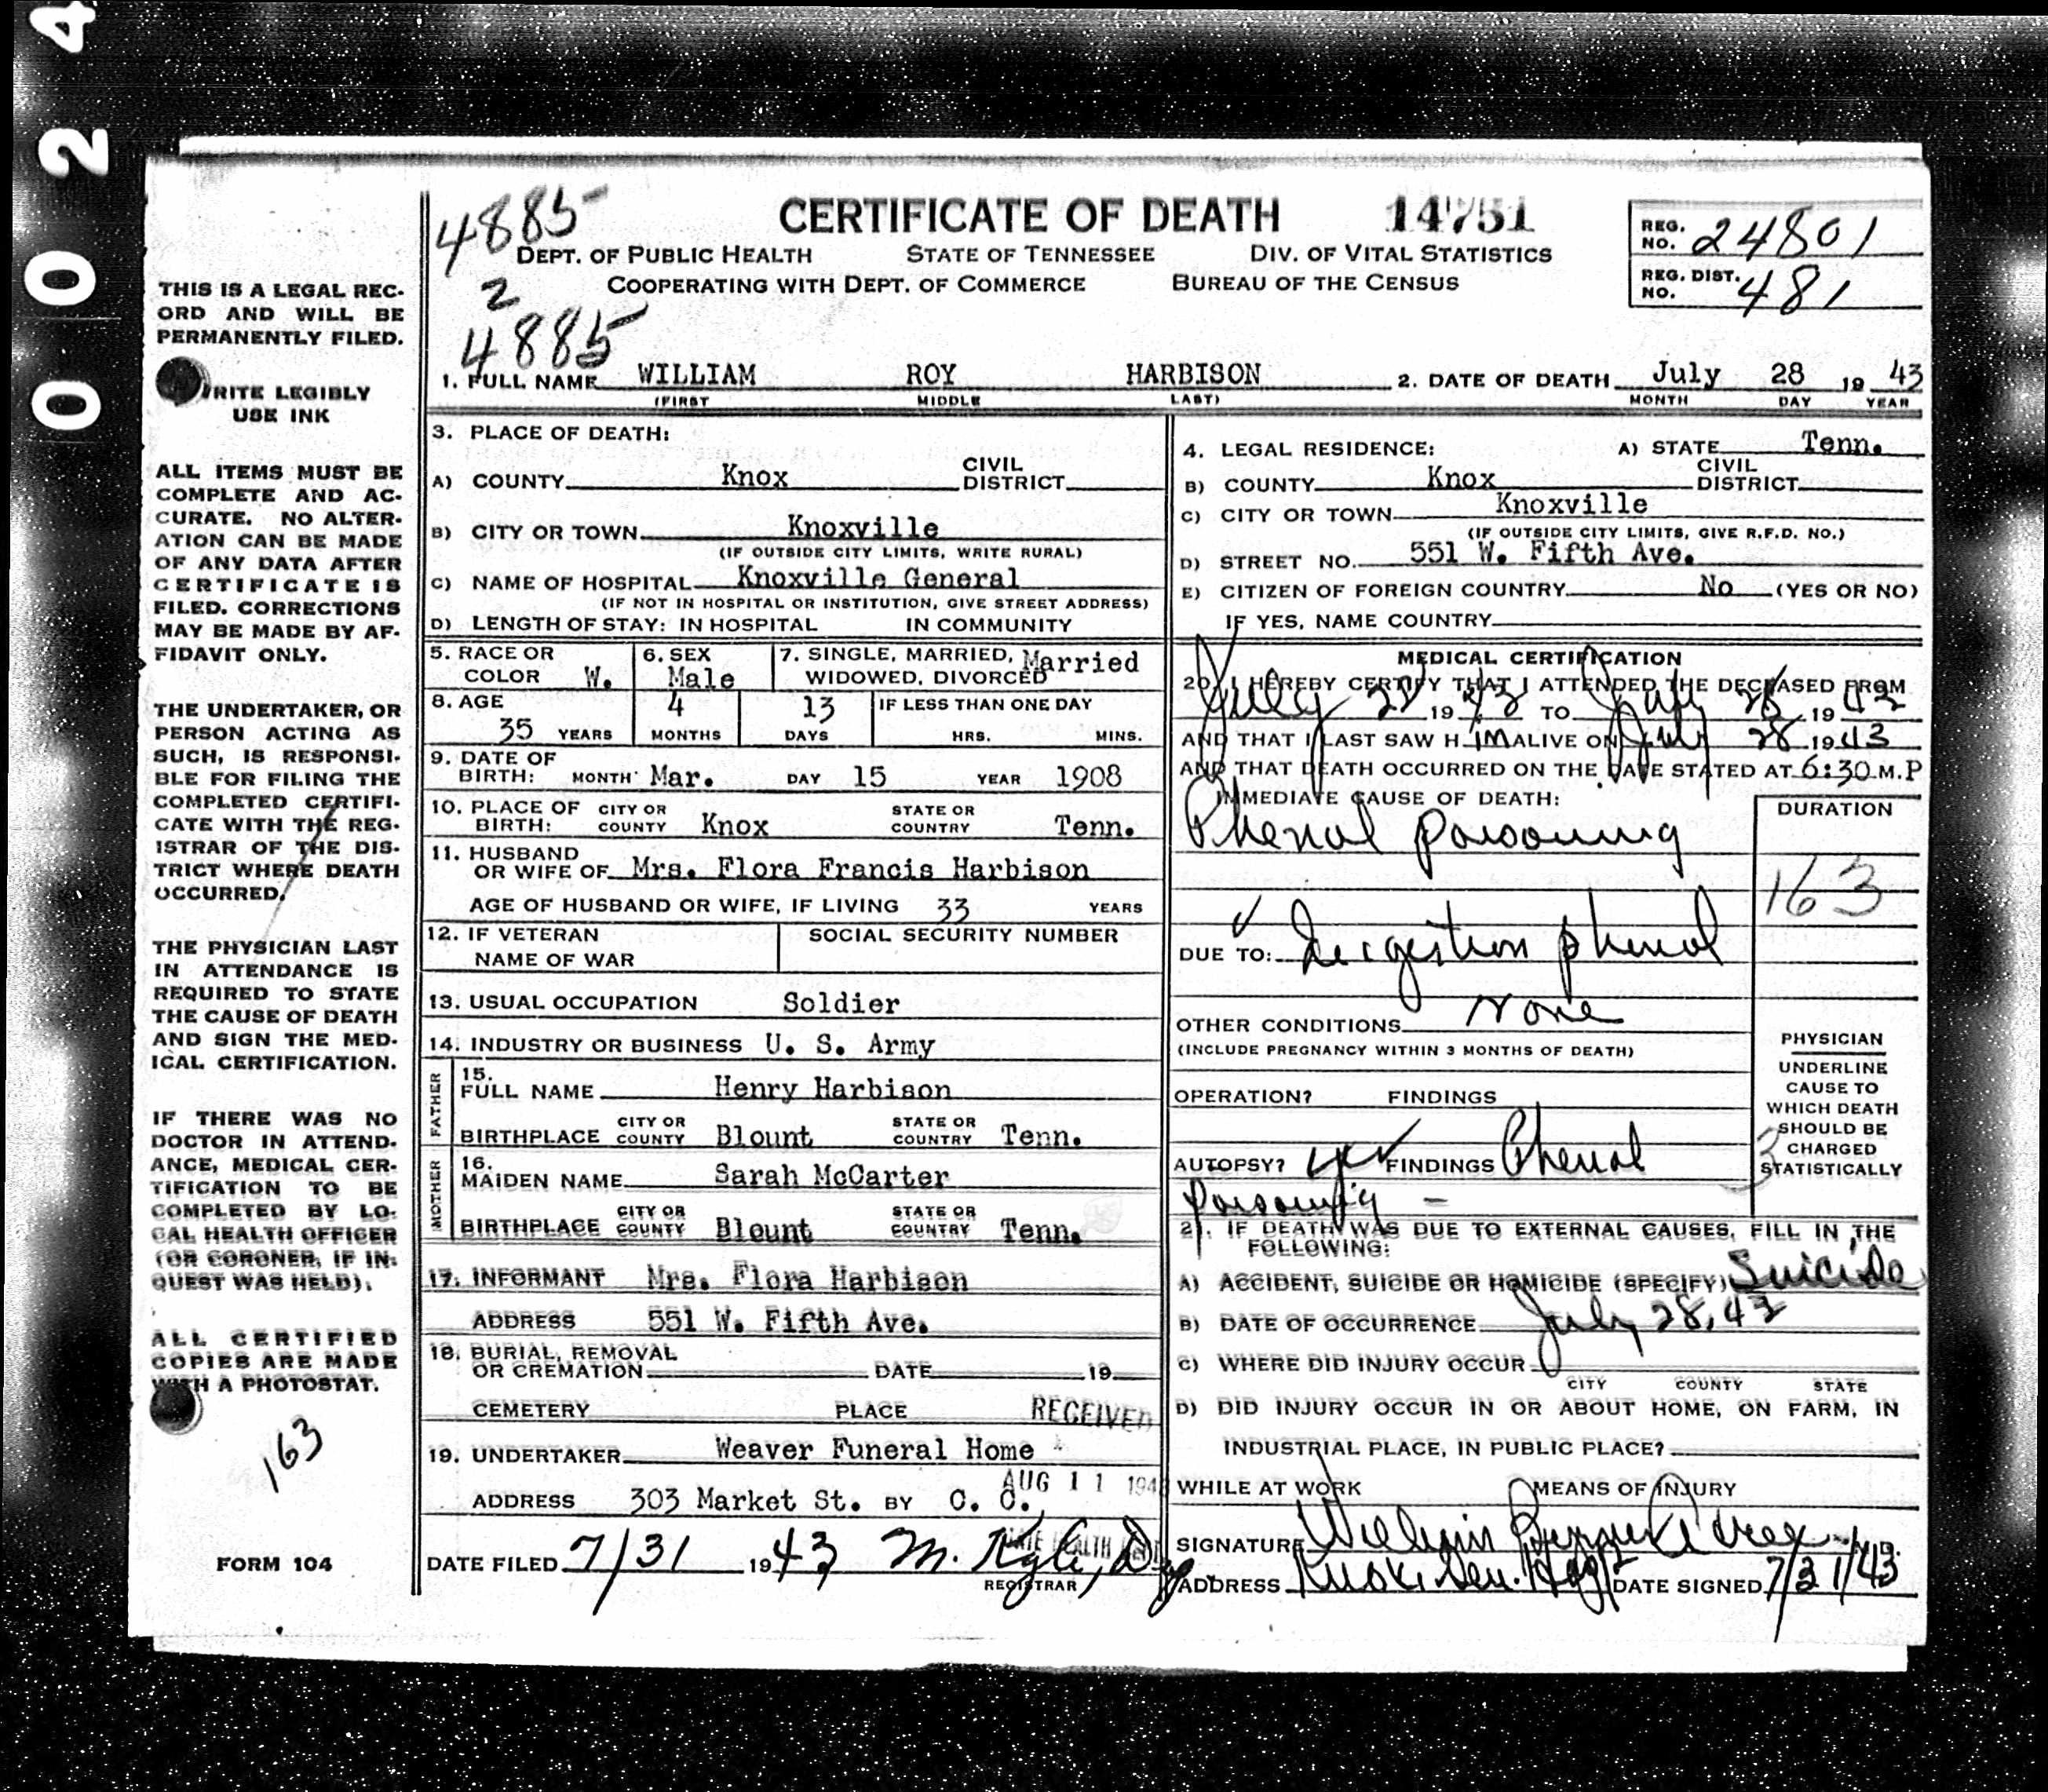 0 0 2 4
4885
CERTIFICATE OF DEATH 14751
REG. NO. 24801
DEPT. OF PUBLIC HEALTH STATE OF TENNESSEE DIV. OF VITAL STATISTICS
COOPERATING WITH DEPT. OF COMMERCE BUREAU OF THE CENSUS
REG. DIST. NO. 481
2
4885
THIS IS A LEGAL REC-
ORD AND WILL BE
PERMANENTLY FILED.
WRITE LEGIBLY
USE INK
ALL ITEMS MUST BE
COMPLETE AND AC-
CURATE. NO ALTER-
ATION CAN BE MADE
OF ANY DATA AFTER
CERTIFICATE IS
FILED. CORRECTIONS
MAY BE MADE BY AF-
FIDAVIT ONLY.
THE UNDERTAKER, OR
PERSON ACTING AS
SUCH, IS RESPONSI-
BLE FOR FILING THE
COMPLETED CERTIFI-
CATE WITH THE REG-
ISTRAR OF THE DIS-
TRICT WHERE DEATH
OCCURRED.
THE PHYSICIAN LAST
IN ATTENDANCE IS
REQUIRED TO STATE
THE CAUSE OF DEATH
AND SIGN THE MED-
ICAL CERTIFICATION.
IF THERE WAS NO
DOCTOR IN ATTEND-
ANCE, MEDICAL CER-
TIFICATION TO BE
COMPLETED BY LO-
CAL HEALTH OFFICER
(OR CORONER, IF IN-
QUEST WAS HELD).
ALL CERTIFIED
COPIES ARE MADE
WITH A PHOTOSTAT.
163
FORM 104
1. FULL NAME WILLIAM ROY HARBISON 2. DATE OF DEATH July 28 19 43
(FIRST MIDDLE LAST) MONTH DAY YEAR
3. PLACE OF DEATH:
A) COUNTY Knox CIVIL DISTRICT
B) CITY OR TOWN Knoxville
(IF OUTSIDE CITY LIMITS, WRITE RURAL)
C) NAME OF HOSPITAL Knoxville General
(IF NOT IN HOSPITAL OR INSTITUTION, GIVE STREET ADDRESS)
D) LENGTH OF STAY: IN HOSPITAL IN COMMUNITY
5. RACE OR COLOR W. 6. SEX Male 7. SINGLE, MARRIED, WIDOWED, DIVORCED Married
8. AGE 35 YEARS 4 MONTHS 13 DAYS IF LESS THAN ONE DAY HRS. MINS.
9. DATE OF BIRTH: MONTH Mar. DAY 15 YEAR 1908
10. PLACE OF BIRTH: CITY OR COUNTY Knox STATE OR COUNTRY Tenn.
11. HUSBAND OR WIFE OF Mrs. Flora Francis Harbison
AGE OF HUSBAND OR WIFE, IF LIVING 33 YEARS
12. IF VETERAN NAME OF WAR SOCIAL SECURITY NUMBER
13. USUAL OCCUPATION Soldier
14. INDUSTRY OR BUSINESS U. S. Army
FATHER
15. FULL NAME Henry Harbison
BIRTHPLACE CITY OR COUNTY Blount STATE OR COUNTRY Tenn.
MOTHER
16. MAIDEN NAME Sarah McCarter
BIRTHPLACE CITY OR COUNTY Blount STATE OR COUNTRY Tenn.
17. INFORMANT Mrs. Flora Harbison
ADDRESS 551 W. Fifth Ave.
18. BURIAL, REMOVAL OR CREMATION DATE 19
CEMETERY PLACE RECEIVED
19. UNDERTAKER Weaver Funeral Home
AUG 11 194
ADDRESS 303 Market St. BY C. C.
DATE FILED 7/31 19 43 M. Kyle, Dep
REGISTRAR
4. LEGAL RESIDENCE: A) STATE Tenn.
B) COUNTY Knox CIVIL DISTRICT
C) CITY OR TOWN Knoxville
(IF OUTSIDE CITY LIMITS, GIVE R.F.D. NO.)
D) STREET NO. 551 W. Fifth Ave.
E) CITIZEN OF FOREIGN COUNTRY No (YES OR NO)
IF YES, NAME COUNTRY
MEDICAL CERTIFICATION
20. I HEREBY CERTIFY THAT I ATTENDED THE DECEASED FROM
July 28 19 43 TO July 28 19 43
AND THAT I LAST SAW H im ALIVE ON July 28 19 43
AND THAT DEATH OCCURRED ON THE DATE STATED AT 6:30 M. P
IMMEDIATE CAUSE OF DEATH: DURATION
Phenol poisoning
163
DUE TO: Ingestion phenol
OTHER CONDITIONS none
(INCLUDE PREGNANCY WITHIN 3 MONTHS OF DEATH)
PHYSICIAN
UNDERLINE
CAUSE TO
WHICH DEATH
SHOULD BE
CHARGED
STATISTICALLY
3
OPERATION? FINDINGS
AUTOPSY? yes FINDINGS Phenol
poisoning -
21. IF DEATH WAS DUE TO EXTERNAL CAUSES, FILL IN THE
FOLLOWING:
A) ACCIDENT, SUICIDE OR HOMICIDE (SPECIFY) Suicide
B) DATE OF OCCURRENCE July 28, 43
C) WHERE DID INJURY OCCUR
CITY COUNTY STATE
D) DID INJURY OCCUR IN OR ABOUT HOME, ON FARM, IN
INDUSTRIAL PLACE, IN PUBLIC PLACE?
WHILE AT WORK MEANS OF INJURY
SIGNATURE
ADDRESS Knox. Gen. Hospt DATE SIGNED 7/31/43